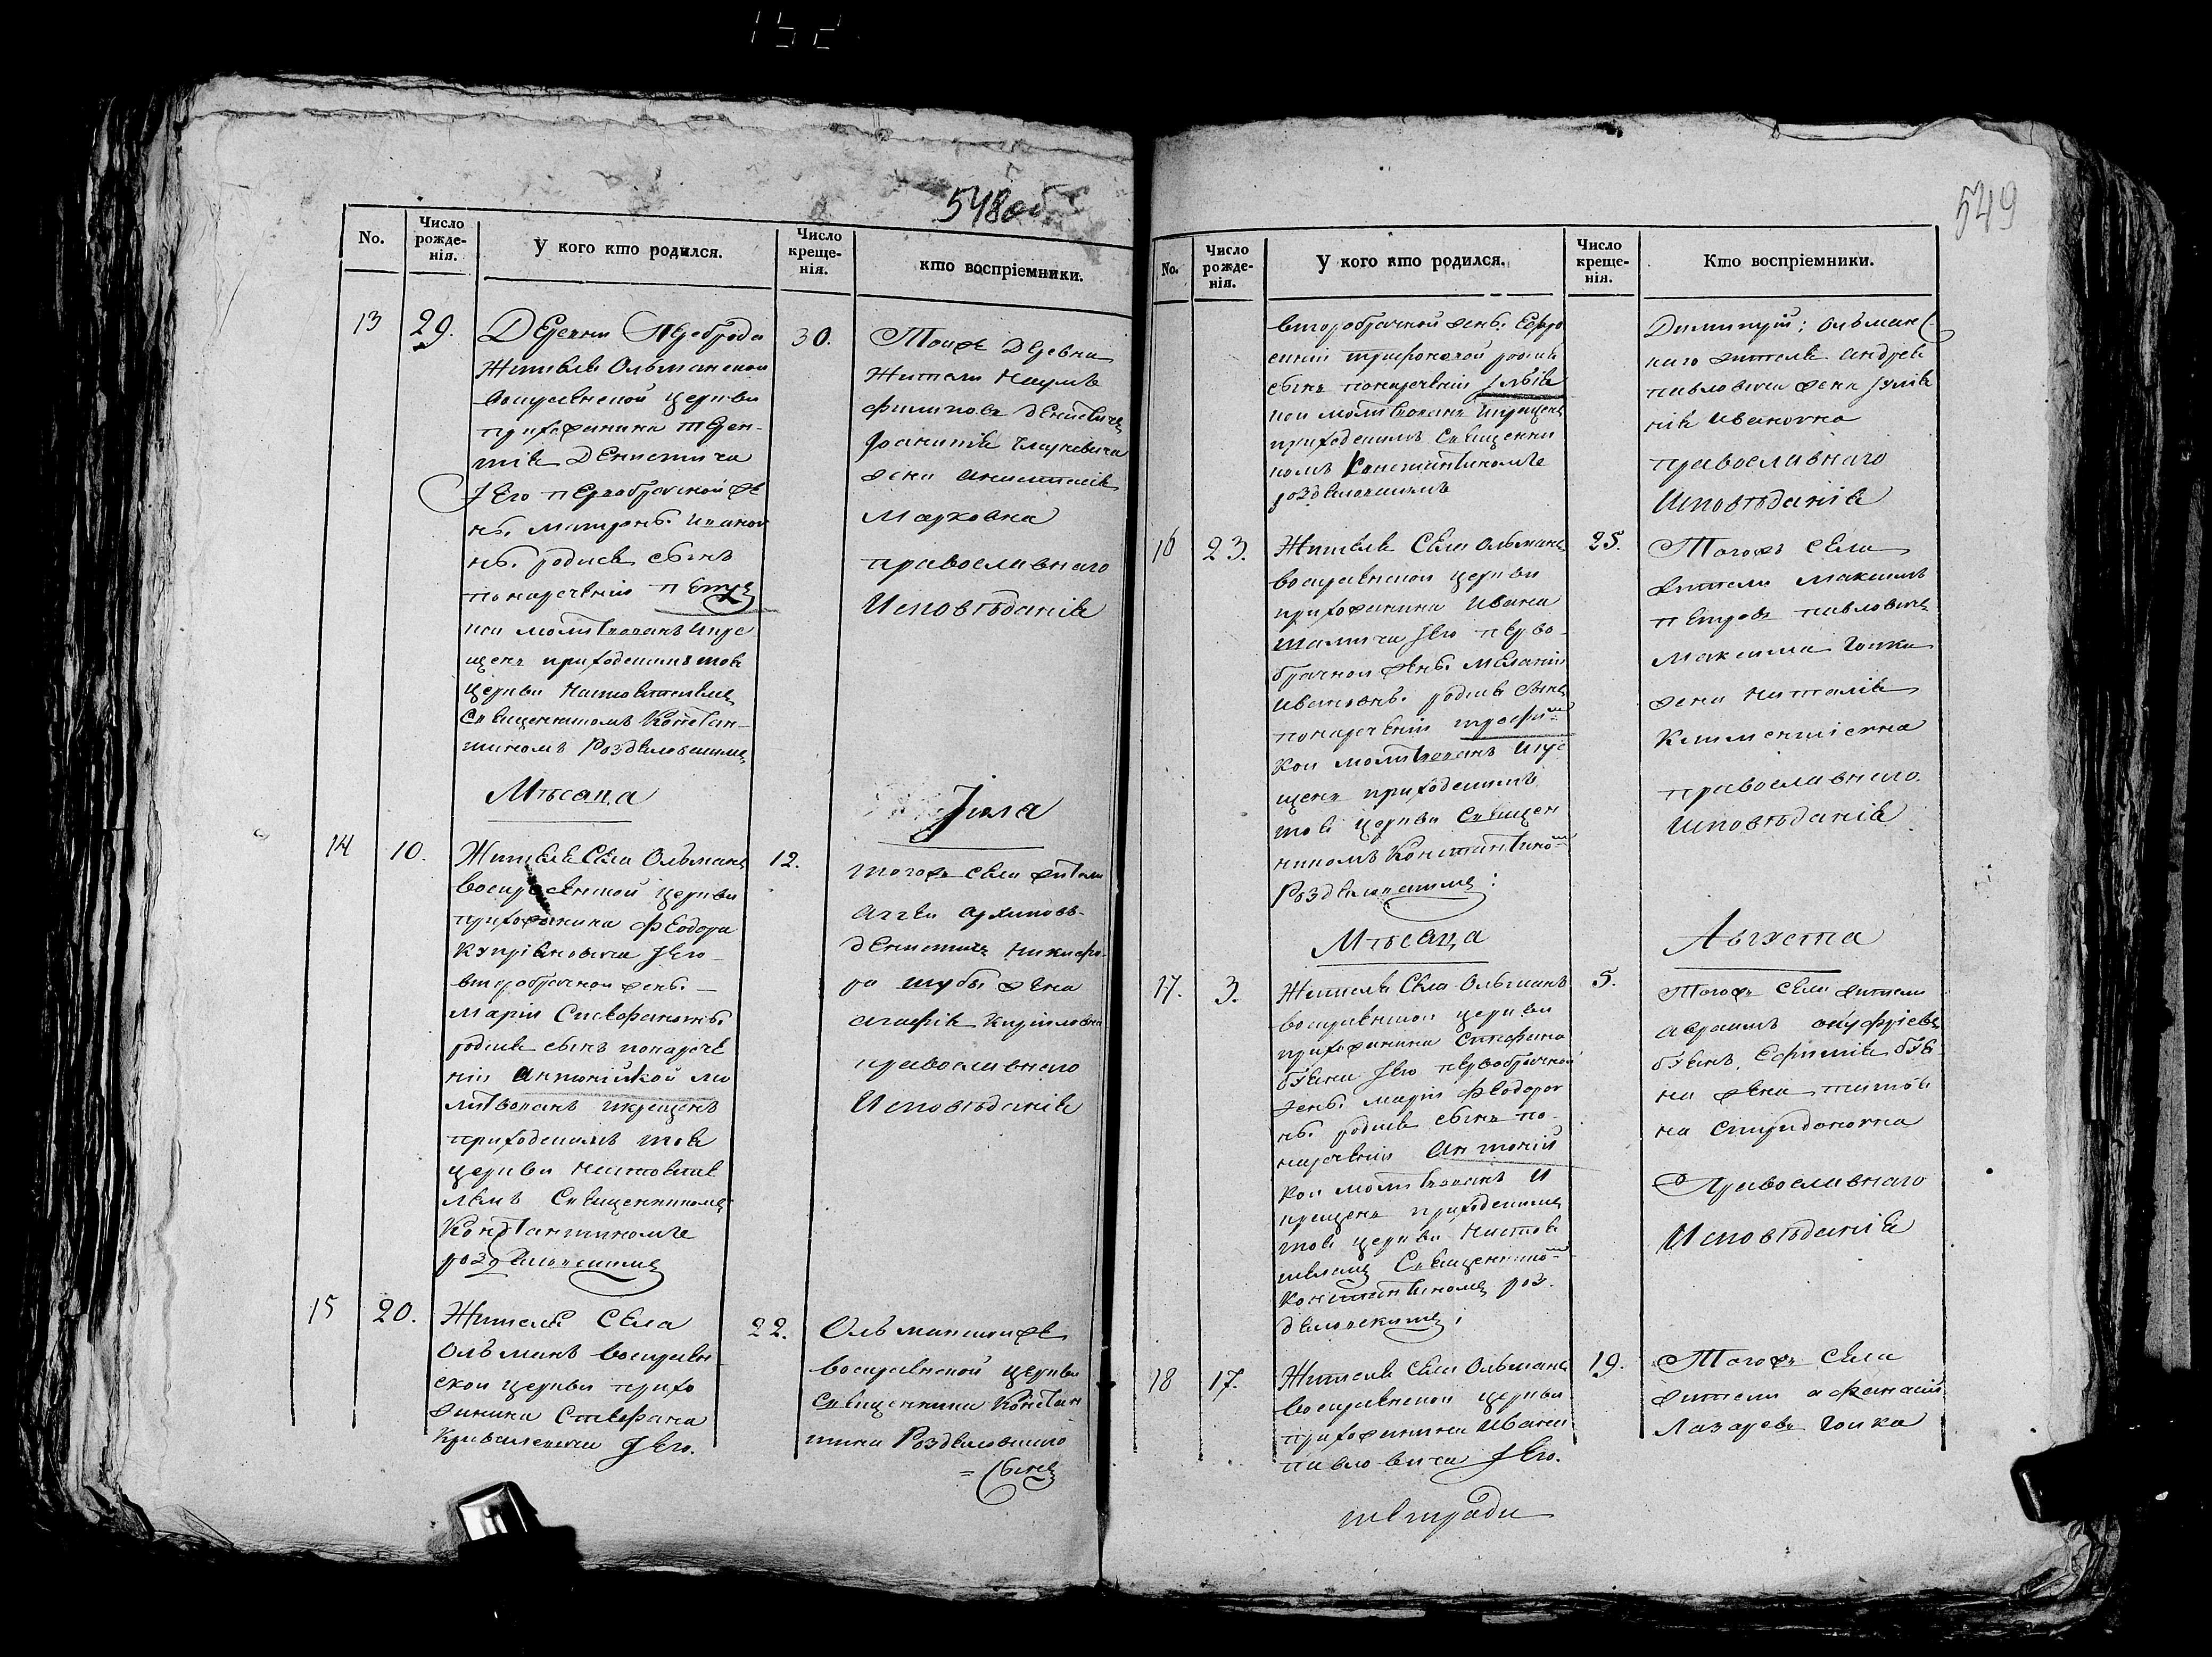 152
548об
No.
Число рожде-нія.
У кого кто родился.
Число креще-нія.
кто воспріемники.
13
29.
Деревни Переброда
Жителя Ольманской
воскресенской церкви
прихожанина терен-
тія Денисмича
Его первобрачной же
нѣ матронѣ иванов
нѣ родися сынъ
понареченіи петръ
кои молитвованъ икре
щенъ приходскимъ тоя
церкви настоятелемъ
Священникомъ Констан-
тиномъ Роздяловскимъ
30.
Тоиже Деревни
Жители Наумъ
филиповъ Денисовичъ
жена анастасія
Марковна
православнаго
Исповѣданія
Мѣсяца
Іюля
14
10.
Жителя Села Ольманъ
воскресенской церкви
прихожанина Феодора
Купріановича Его
второбрачной женѣ
Маріи Стефановнѣ
родися сынъ понарече
ніи Антоній кой мо
литвованъ икрещенъ
приходскимъ тоя
церкви настояте
лемъ Священникомъ
Константиномъ
роздяловскимъ
12.
тогожъ села жители
архиповъ
Никифо-
ра шубы жена
агафія Кириловна
православнаго
Исповѣданія
15
20.
Жителя Села
Ольманъ воскресен
ской церкви прихо
жанина Стефана
Его.
22.
Ольманскойже
воскресенской церкви
Священника Констан
тина Роздяловскаго
=сынъ
549
No.
Число рожде-нія.
У кого кто родился.
Число креще-нія.
Кто воспріемники.
второбрачной женѣ Ефро
синіи трифоновой родися
сынъ понареченіи Илія
кои молитвованъ икрещенъ
приходскимъ Священни
комъ Константиномъ
роздяловскимъ
Димитрій; Ольманс
каго жителя андрея
павловича жена Іулія
нія Ивановна
православнаго
Исповѣданія
16
23.
Жителя Села Ольманъ
воскресенской церкви
прихожанина Ивана
Его перво-
брачной женѣ Меланіи
Ивановнѣ родися сынъ
понареченіи трофим
кои молитвованъ икре
щенъ приходскимъ
тоя церкви Священ
никомъ Константином
Роздяловскимъ:
25.
Тогожъ Села
жители Максимъ
петровъ павловичъ
Максима Гопки
жена Наталія
Климентіевна
православнаго
Исповѣданія
Мѣсяца
Августа
17.
3.
Жителя Села Ольманъ
воскресенской церкви
прихожанина Стефана
Его первобрачной
женѣ маріи Феодоров
нѣ родися сынъ по-
нареченіи Антоній
кои молитвованъ и
крещенъ приходскимъ
тоя церкви настоя
телемъ Священником
Константиномъ роз-
дяловскимъ;
5.
Тогожъ Села жители
авраамъ онуфріевъ
на жена татія
на спиридоновна
Православнаго
Исповѣданія
18
17.
Жителя Села Ольманъ
воскресенской церкви
прихожанина Ивана
павловича Его.
19.
Тогожъ Села
жители афанасій
Лазаревъ Гопка
тетради